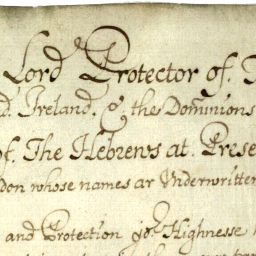 Lord Protector of. T
d. Ireland. & the Dominions
of. The Hebrews at. Prese
don whose names ar Underwritten
and Protection yor Highnesse